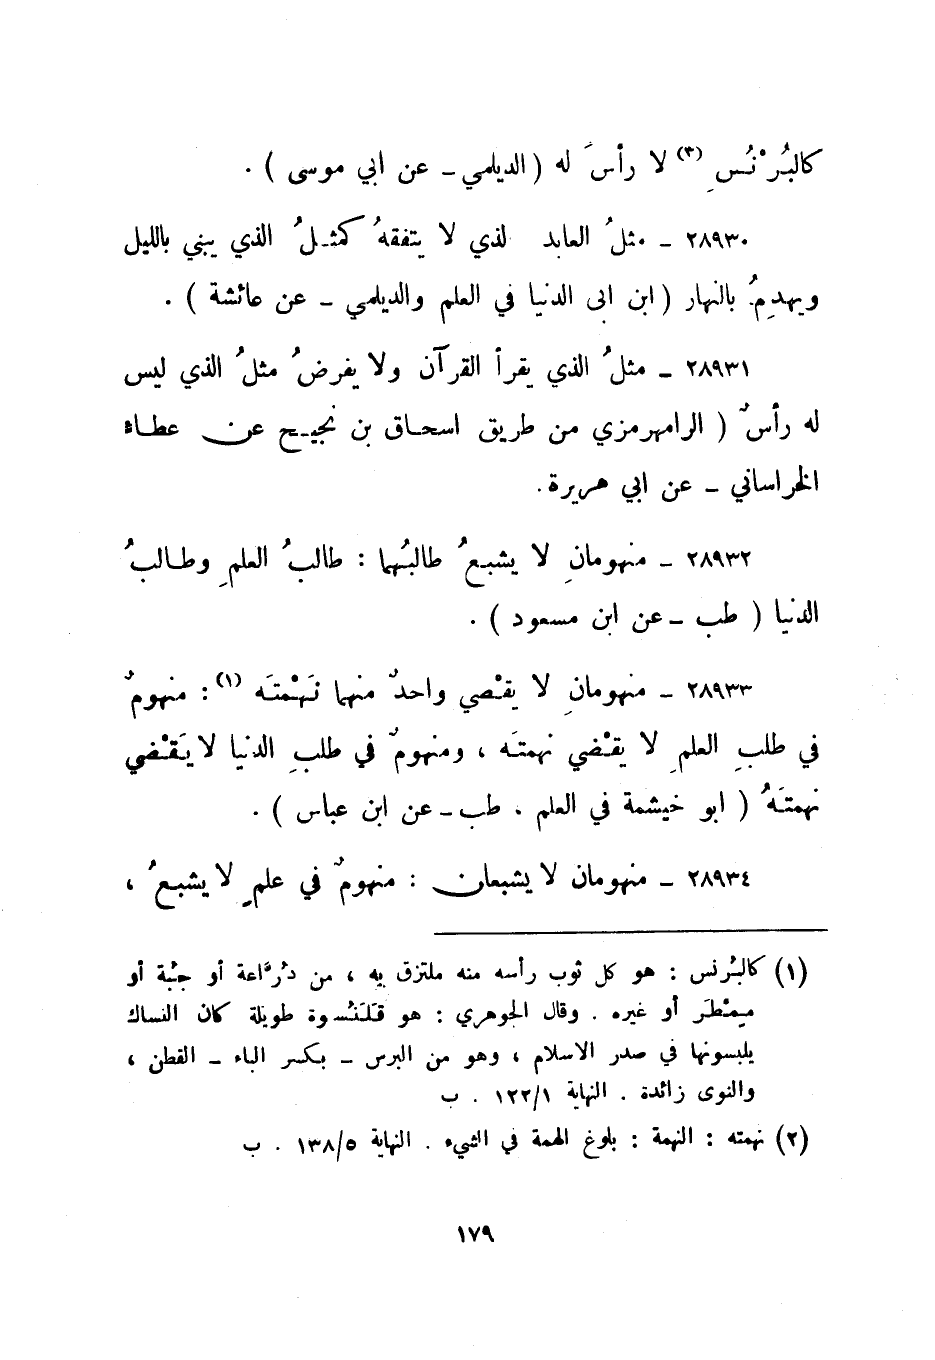 كالبُرْنُسِ (٣) لا رأسَ له ( الديلمي ـ عن ابي موسى ) .
٢٨٩٣٠ ـ مثلُ العابد لذي لا يتفقهُ كمثـلُ الذي يبني بالليل
ويهدِمُ بالنهار ( ابن ابى الدنيا في العلم والديلمي ـ عن عائشة ) .
٢٨٩٣١ ـ مثلُ الذي يقرأ القرآن ولا يفرضُ مثلُ الذي ليس
له رأسٌ ( الرامهرمزي من طريق اسحـاق بن نجيـح عن عطـاء
الخراساني ـ عن ابي هريرة .
٢٨٩٣٢ ـ منهومانِ لا يشبـعُ طالبُهما : طالبُ العلمِ وطـالبُ
الدنيا ( طب ـ عن ابن مسعود ) .
٢٨٩٣٣ ـ منهومانِ لا يقْضي واحدٌ منهما نَهْمتَه (١) : منهومٌ
في طلبِ العلمِ لا يقْضي نهمتَه ، ومنهومٌ في طلبِ الدنيا لا يَقْضي
نهمتَهُ ( ابو خيثمة في العلم ، طب ـ عن ابن عباس ) .
٢٨٩٣٤ ـ منهومان لا يشبعان : منهومٌ في علمٍ لا يشبـعُ ،
(١) كالبُرنس : هو كل ثوب رأسه منه ملتزق به ، من دُرَّاعة أو جبُة أو
مِمْطَر أو غيره . وقال الجوهري : هو قَلَنْسوة طويلة كان النساك
يلبسونها في صدر الاسلام ، وهو من البرس ـ بكسر الباء ـ القطن ،
والنوى زائدة . النهاية ١٢٢/١ . ب
(٢) نهمته : النهمة : بلوغ الهمة في الشيء . النهاية ١٣٨/٥ . ب
١٧٩